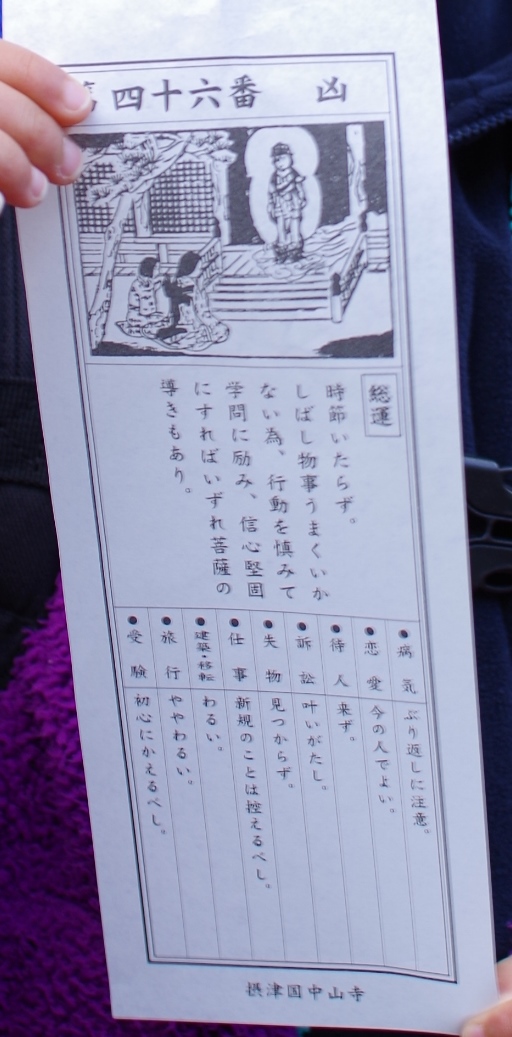 第四十六番 凶
総運
時節いたらず。
しばし物事うまくいか
ない為、行動を慎みて
学問に励み、信心堅固
にすればいずれ菩薩の
導きもあり。
●病気 ぶり返しに注意。
●恋愛 今の人でよい。
●待人 来ず。
●訴訟 叶いがたし。
●失物 見つからず。
●仕事 新規のことは控えるべし。
●建築・移転 わるい。
●旅行 ややわるい。
●受験 初心にかえるべし。
摂津国中山寺